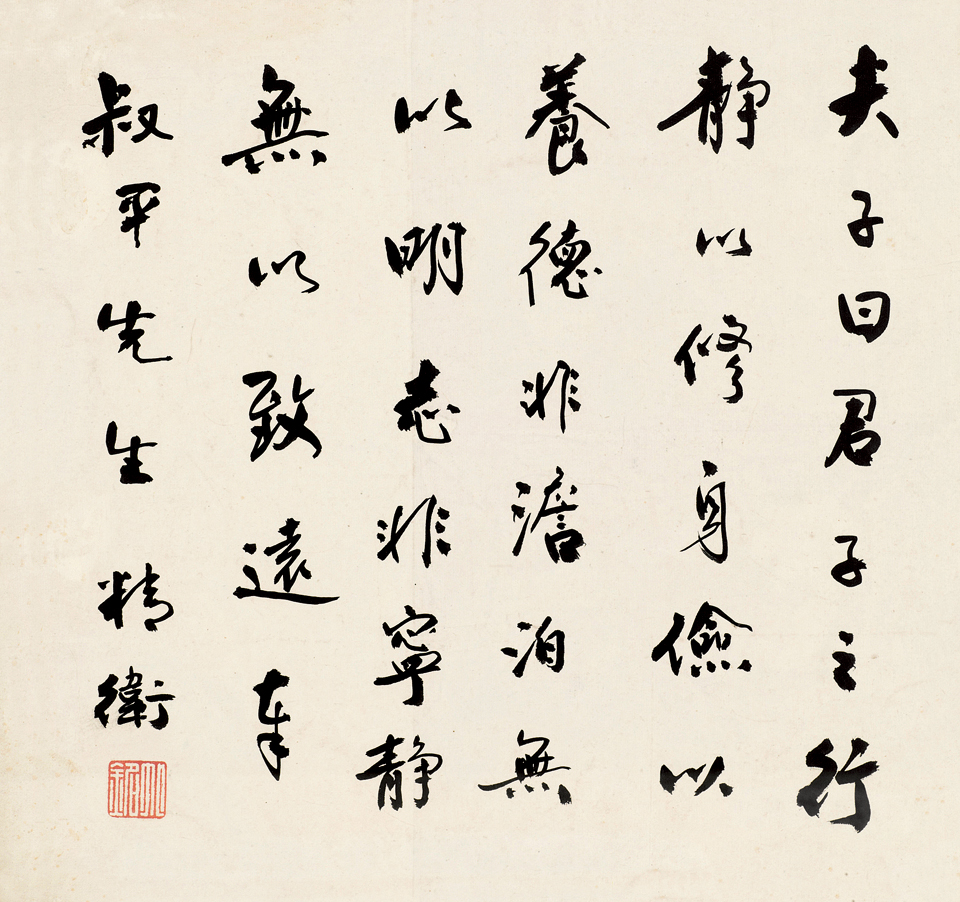 夫子曰君子之行
静以修身儉以
養德非澹泊無
以明志非寧静
無以致遠奉
叔平先生 精衛
兆銘